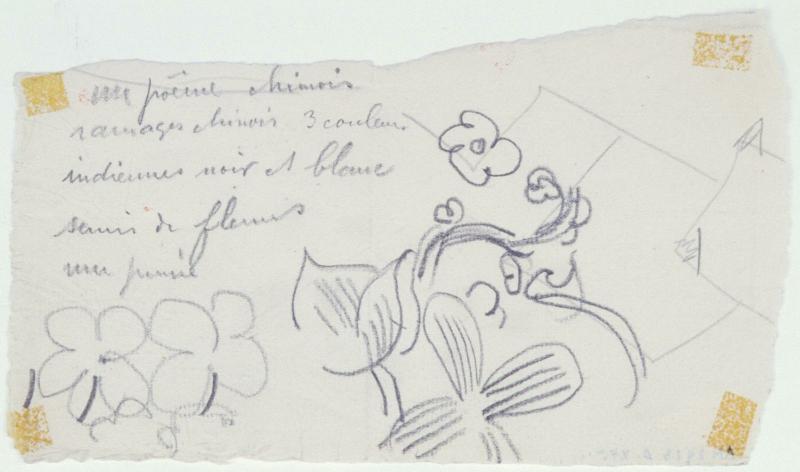 un poême chinois
ramages chinois 3 couleurs
indiennes noir et blanc
semis de fleurs
une